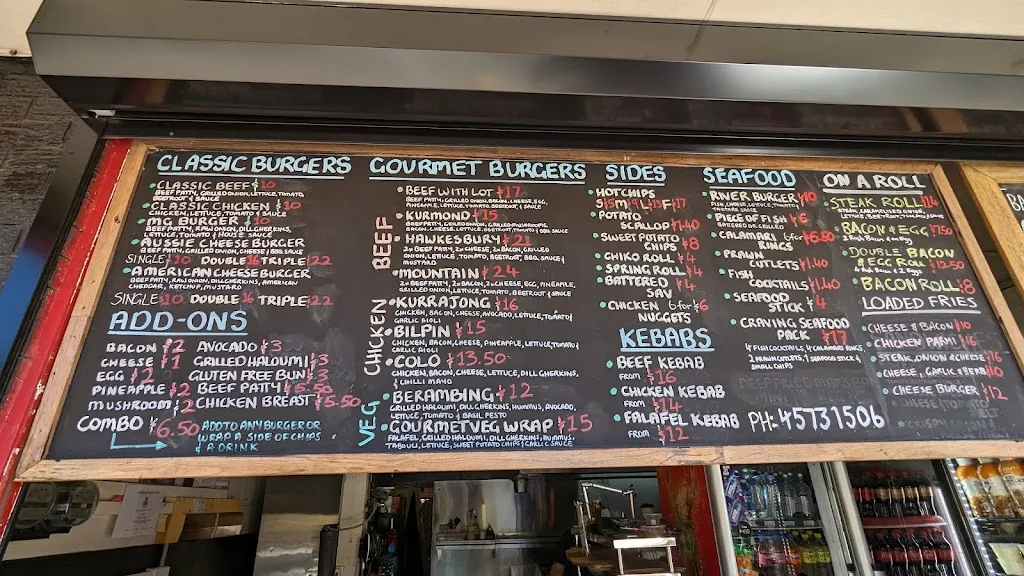 CLASSIC BURGERS
CLASSIC BEEF $10
BEEF PATTY, GRILLED ONION, LETTUCE, TOMATO,
BEETROOT & SAUCE
CLASSIC CHICKEN $10
CHICKEN, LETTUCE, TOMATO & SAUCE
MG BURGER $10
BEEF PATTY, RAW ONION, DILL GHERKINS,
LETTUCE, TOMATO & HOUSE
AUSSIE CHEESEBURGER
BEEF PATTY, CHEESE, GRILLED ONION & SAUCE
SINGLE $10 DOUBLE 16 TRIPLE 22
AMERICAN CHEESEBURGER
BEEF PATTY, RAW ONION, DILL GHERKINS, AMERICAN
CHEDDAR, KETCHUP, MUSTARD
SINGLE 10 DOUBLE 16 TRIPLE 22
ADD-ONS
BACON $2 AVOCADO $3
CHEESE $1 GRILLED HALOUMI $3
EGG $2 GLUTEN FREE BUN $3
PINEAPPLE $2 BEEF PATTY $5.50
MUSHROOM $2 CHICKEN BREAST $5.50
COMBO $6.50 ADD TO ANY BURGER OR
WRAP A SIDE OF CHIPS
& A DRINK
GOURMET BURGERS
BEEF
BEEF WITH LOT $17
BEEF PATTY, GRILLED ONION, BACON, CHEESE, EGG,
PINEAPPLE, LETTUCE, TOMATO, BEETROOT & SAUCE
KURMOND $15
HAWKESBURY $21
2x BEEF PATTY, 2x BACON, GRILLED
ONION, LETTUCE, TOMATO, BEETROOT, BBQ SAUCE &
MUSTARD
MOUNTAIN $24
2x BEEF PATTY, 2x BACON, 2x CHEESE, EGG, PINEAPPLE,
GRILLED ONION, LETTUCE, TOMATO, BEETROOT & SAUCE
CHICKEN
KURRAJONG $16
CHICKEN, BACON, CHEESE, AVOCADO, LETTUCE, TOMATO &
GARLIC AIOLI
BILPIN $15
CHICKEN, BACON, CHEESE, PINEAPPLE, LETTUCE, TOMATO &
GARLIC AIOLI
COLO $13.50
CHICKEN, BACON, CHEESE, LETTUCE, DILL GHERKINS,
& CHILLI MAYO
VEG
BERAMBING $12
GRILLED HALOUMI, DILL GHERKINS, HUMMUS, AVOCADO,
LETTUCE, TOMATO & BASIL PESTO
GOURMET VEG WRAP $15
FALAFEL, GRILLED HALOUMI, DILL GHERKINS, HUMMUS,
TABOULI, LETTUCE, SWEET POTATO CHIPS & GARLIC SAUCE
SIDES
HOT CHIPS
POTATO
SCALLOP $1.40
SWEET POTATO
CHIPS $8
CHIKO ROLL $4
SPRING ROLL $4
BATTERED $4
SAV
CHICKEN 6 for $6
NUGGETS
KEBABS
BEEF KEBAB
FROM $16
CHICKEN KEBAB
FROM $14
FALAFEL KEBAB
FROM $12
SEAFOOD
RIVER BURGER $10
PIECE OF FISH $6
BATTERED OR GRILLED
CALAMARI 6 for $6.80
RINGS
PRAWN
CUTLETS $1.40
FISH
COCKTAILS $1.40
SEAFOOD
STICK $4
CRAVING SEAFOOD
PACK $17
4 FISH COCKTAILS, 4 CALAMARI RINGS,
2 PRAWN CUTLETS, 1 SEAFOOD STICK &
SMALL CHIPS
PH: 45731506
ON A ROLL
STEAK ROLL $14
BACON & EGG $7.50
DOUBLE BACON
& EGG ROLL $12.50
BACON ROLL $8
LOADED FRIES
CHEESE & BACON $10
CHICKEN PARMI $16
STEAK, ONION & CHEESE $16
CHEESE, GARLIC & HERB $10
CHEESE BURGER $12